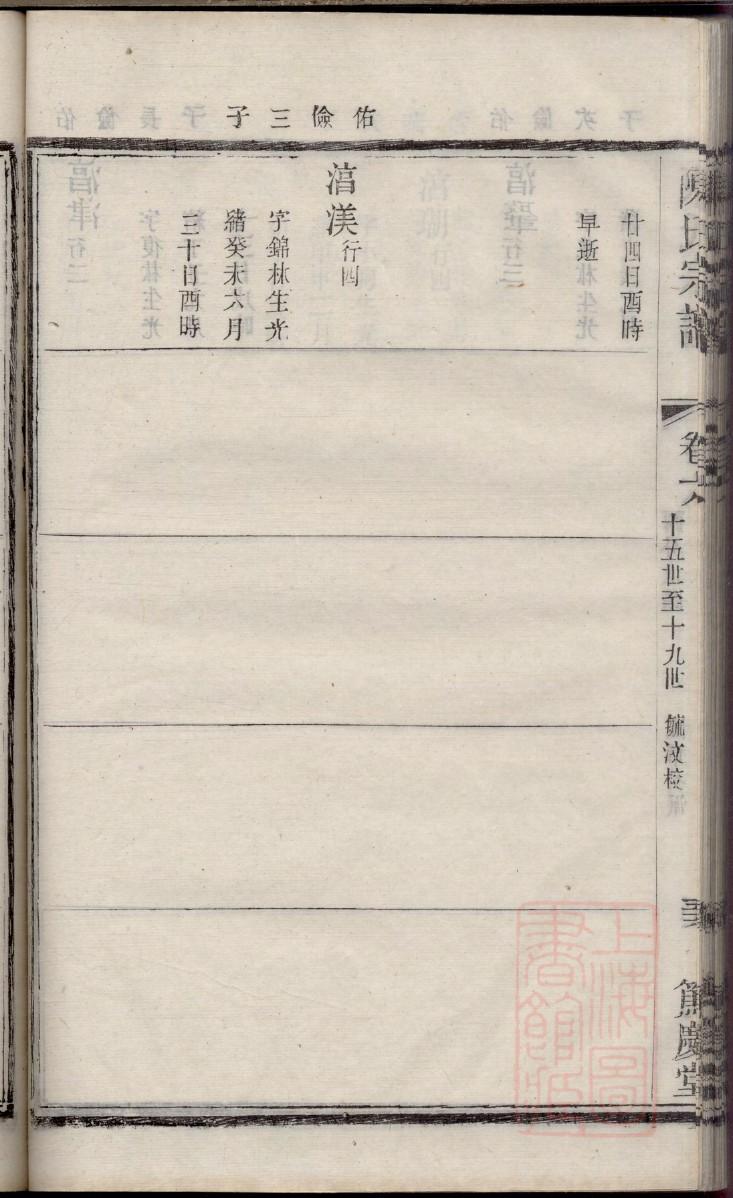 佑儉三子
廿四日酉時
早逝
湻渼行四
字錦林生光
緒癸未六月
三十日酉時
陳氏宗譜
卷六
十五世至十九世
毓汶校
篤慶堂
上海圖書館藏